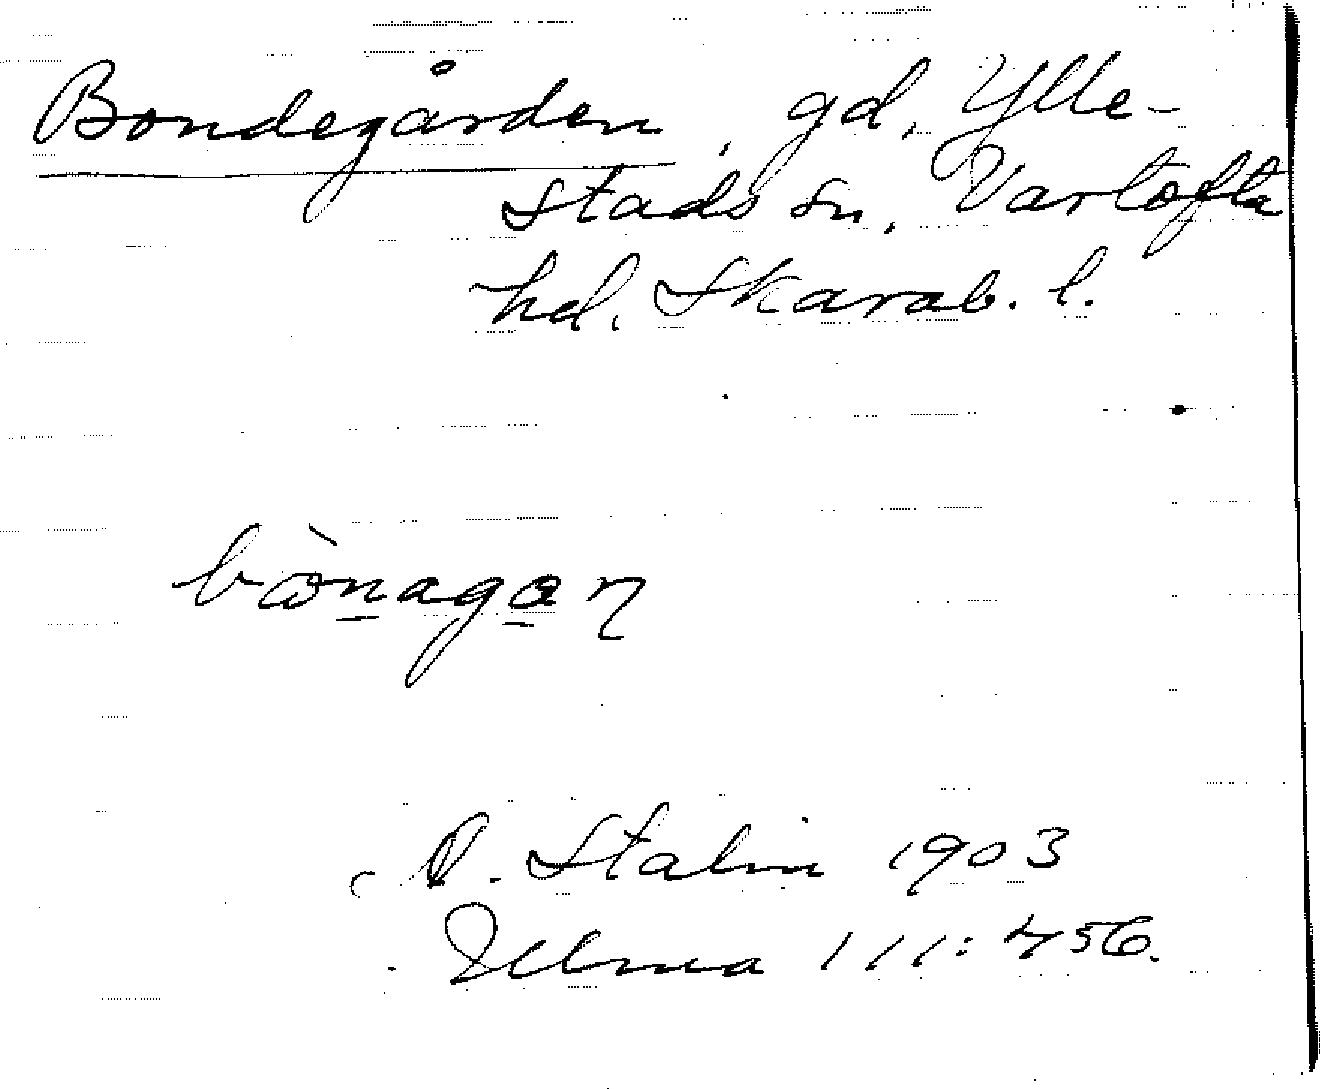 Bondegården, gd, Ylle-
stads sn, Vartofta
hd. Skarab. l.
bònagaɳ
Stalin 1903
111:456.